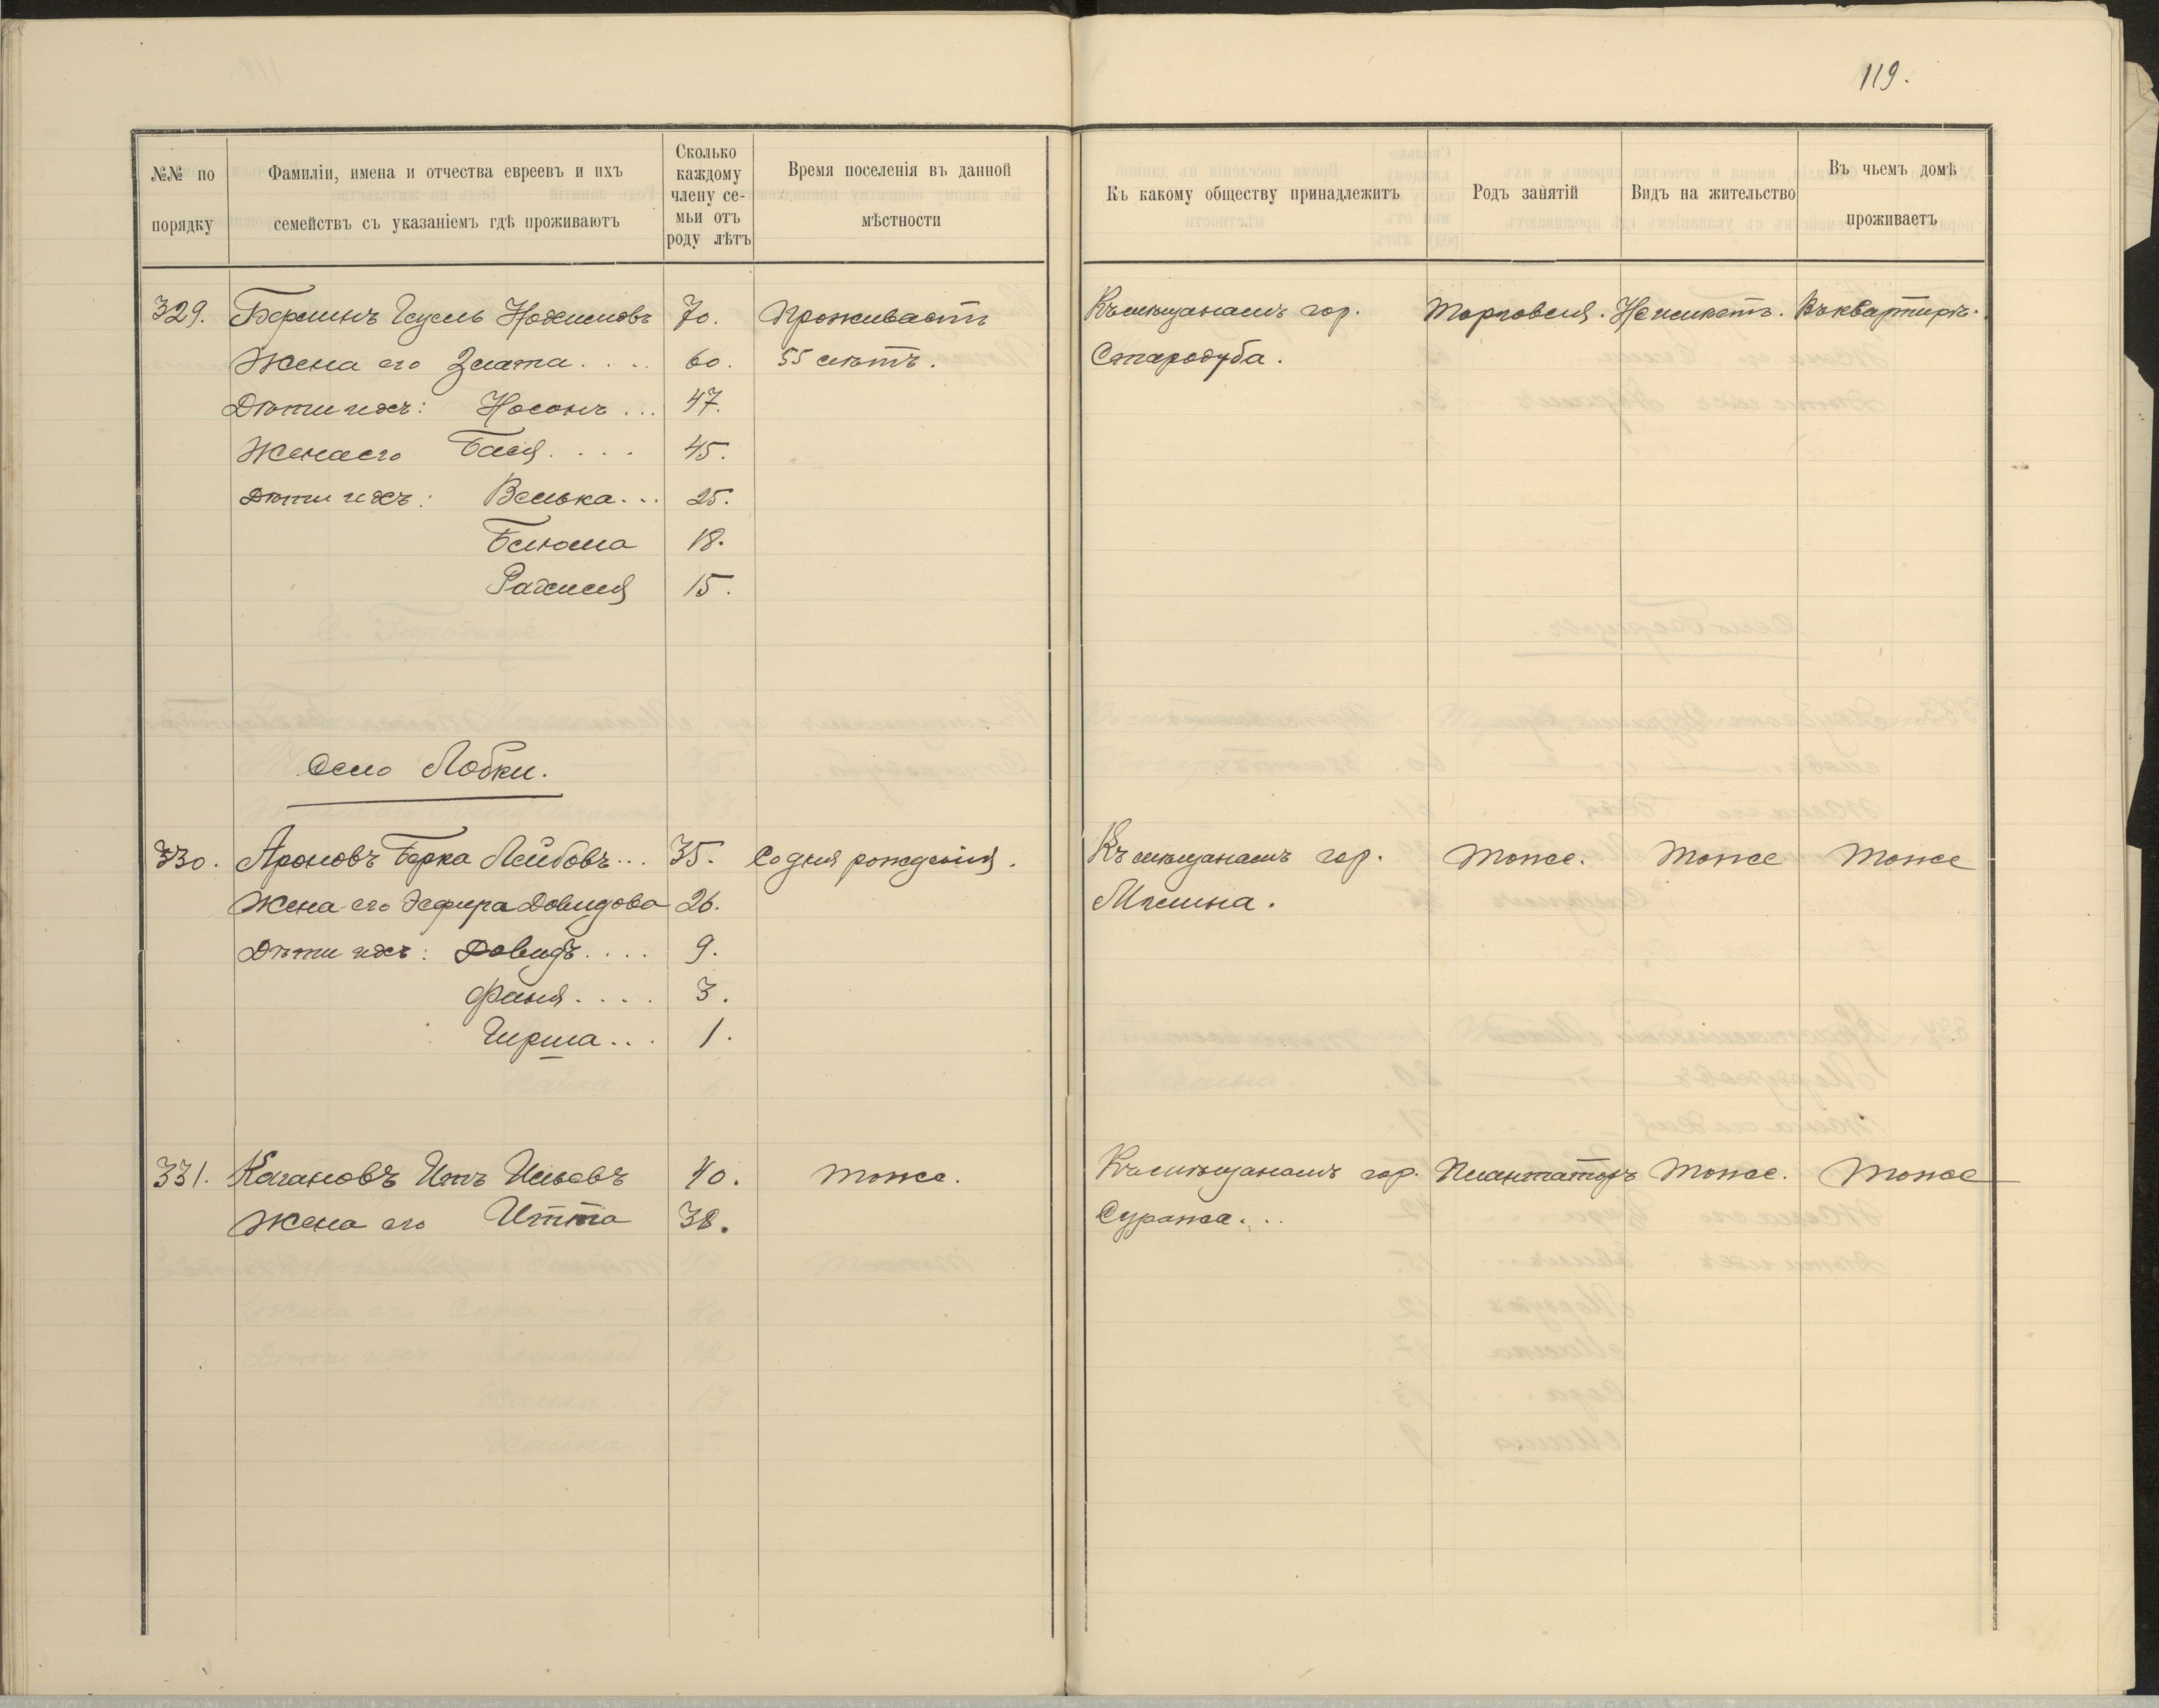 119.
№№ по порядку
Фамиліи, имена и отчества евреевъ и ихъ семействъ съ указаніемъ гдѣ проживаютъ
Сколько каждому члену семьи отъ роду лѣтъ
Время поселенія въ данной мѣстности
Къ какому обществу принадлежитъ
Родъ занятій
Видъ на жительство
Въ чьемъ домѣ проживаетъ
329. Берлинъ Гесель Нохимовъ 70. Проживаетъ Къ мѣщанамъ гор. Торговля. Не имѣетъ. Въ квартирѣ.
Жена его Злата.... 60. 55 лѣтъ. Стародуба.
Дѣти ихъ: Носонъ... 47.
Жена его Бася.... 45.
Дѣти ихъ: Велька... 25.
Блюма 18.
Рахиля 15.
Село Лобки.
330. Ароновъ Берка Лейбовъ... 35. Со дня рожденія. Къ мѣщанамъ гор. Тоже. Тоже Тоже
Жена его Эсфира Довидова 26. Мглина.
Дѣти ихъ: Довидъ.... 9.
Фаня.... 3.
Гирша... 1.
331. Кагановъ Ицъ Ильевъ 40. Тоже. Къ мѣщанамъ гор. Плантаторъ Тоже. Тоже
Жена его Итта 38. Суража...